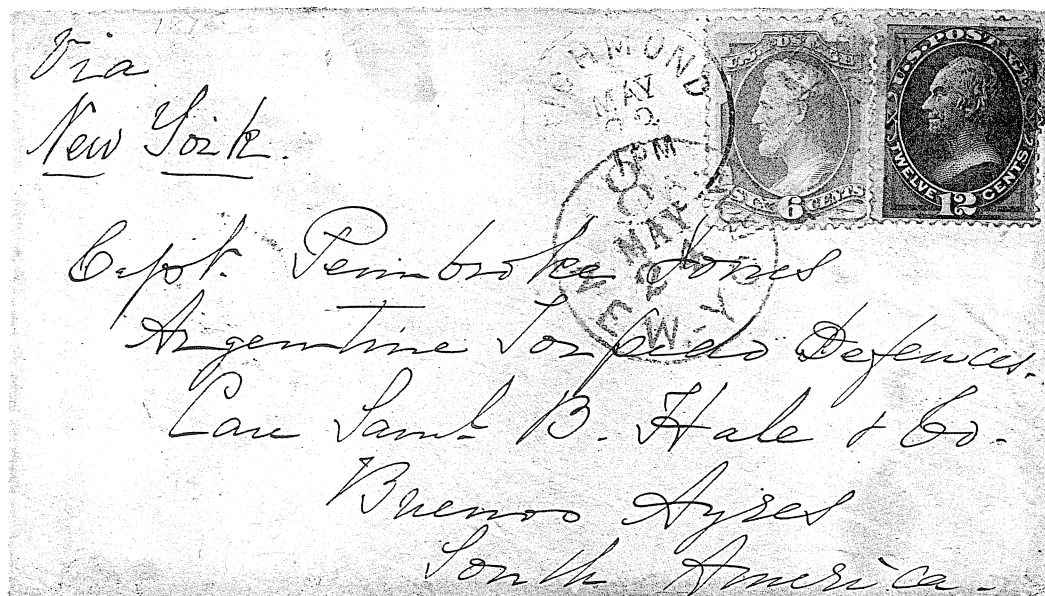 Via
New York.
RICHMOND
MAY
22
1 PM
U.S. POSTAGE
SIX 6 CENTS
U.S. POSTAGE
TWELVE 12 CENTS
NEW Y
MAY
24
Capt. Pembroke Jones
Argentine Torpedo Defences.
Care Saml. B. Hale & Co.
Buenos Ayres
South America.